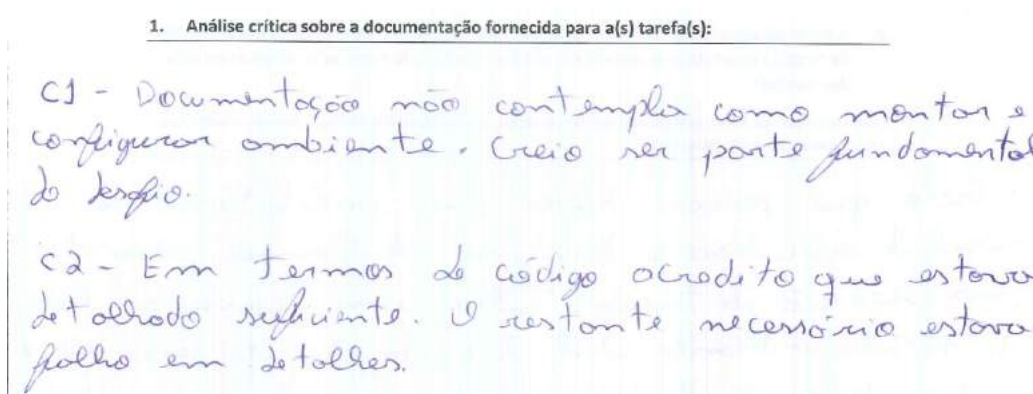 1. Análise crítica sobre a documentação fornecida para a(s) tarefa(s):
C1 - Documentação não contempla como montar e
configurar ambiente. Creio ser parte fundamental
do desafio.
C2 - Em termos de código acredito que estava
detalhado suficiente. O restante necessário estava
falho em detalhes.